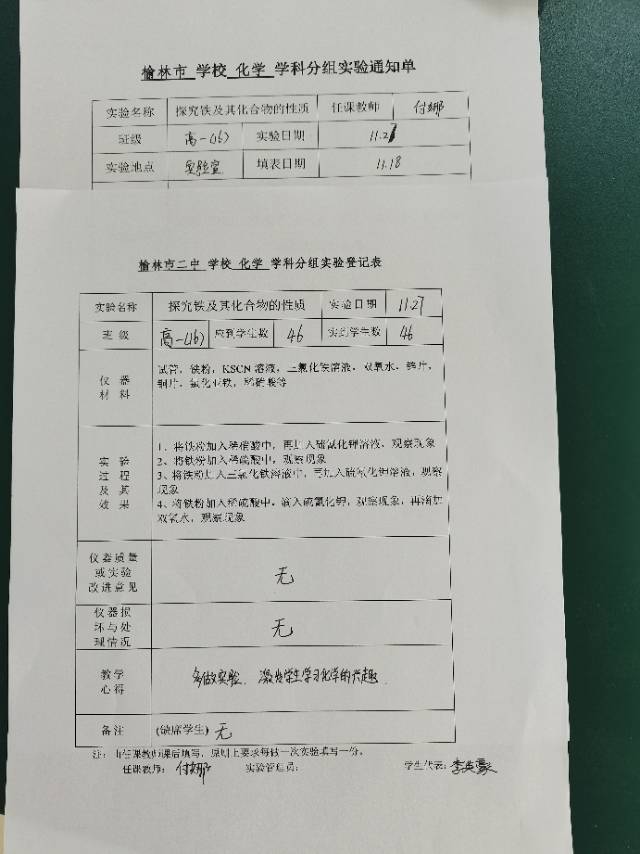 榆林市 学校 化学 学科分组实验通知单
实验名称 探究铁及其化合物的性质 任课教师 付娜
班级 高一(16) 实验日期 11.27
实验地点 实验室 填表日期 11.18
榆林市二中 学校 化学 学科分组实验登记表
实验名称 探究铁及其化合物的性质 实验日期 11.27
班级 高一(16) 应到学生数 46 实到学生数 46
仪器材料 试管，铁粉，KSCN 溶液，三氯化铁溶液，双氧水，锌片，
铜片，氯化亚铁，稀硝酸等
实验过程及其效果
1、将铁粉加入稀硝酸中，再加入硫氰化钾溶液，观察现象
2、将铁粉加入稀硫酸中，观察现象
3、将铁粉加入三氯化铁溶液中，再加入硫氰化钾溶液，观察
现象
4、将铁粉加入稀硫酸中，滴入硫氰化钾，观察现象，再滴加
双氧水，观察现象
仪器质量或实验改进意见 无
仪器损坏与处理情况 无
教学心得 多做实验，激发学生学习化学的兴趣
备注 (缺席学生) 无
注：由任课教师课后填写，原则上要求每做一次实验填写一份。
任课教师： 付娜 实验管理员： 学生代表：李英豪